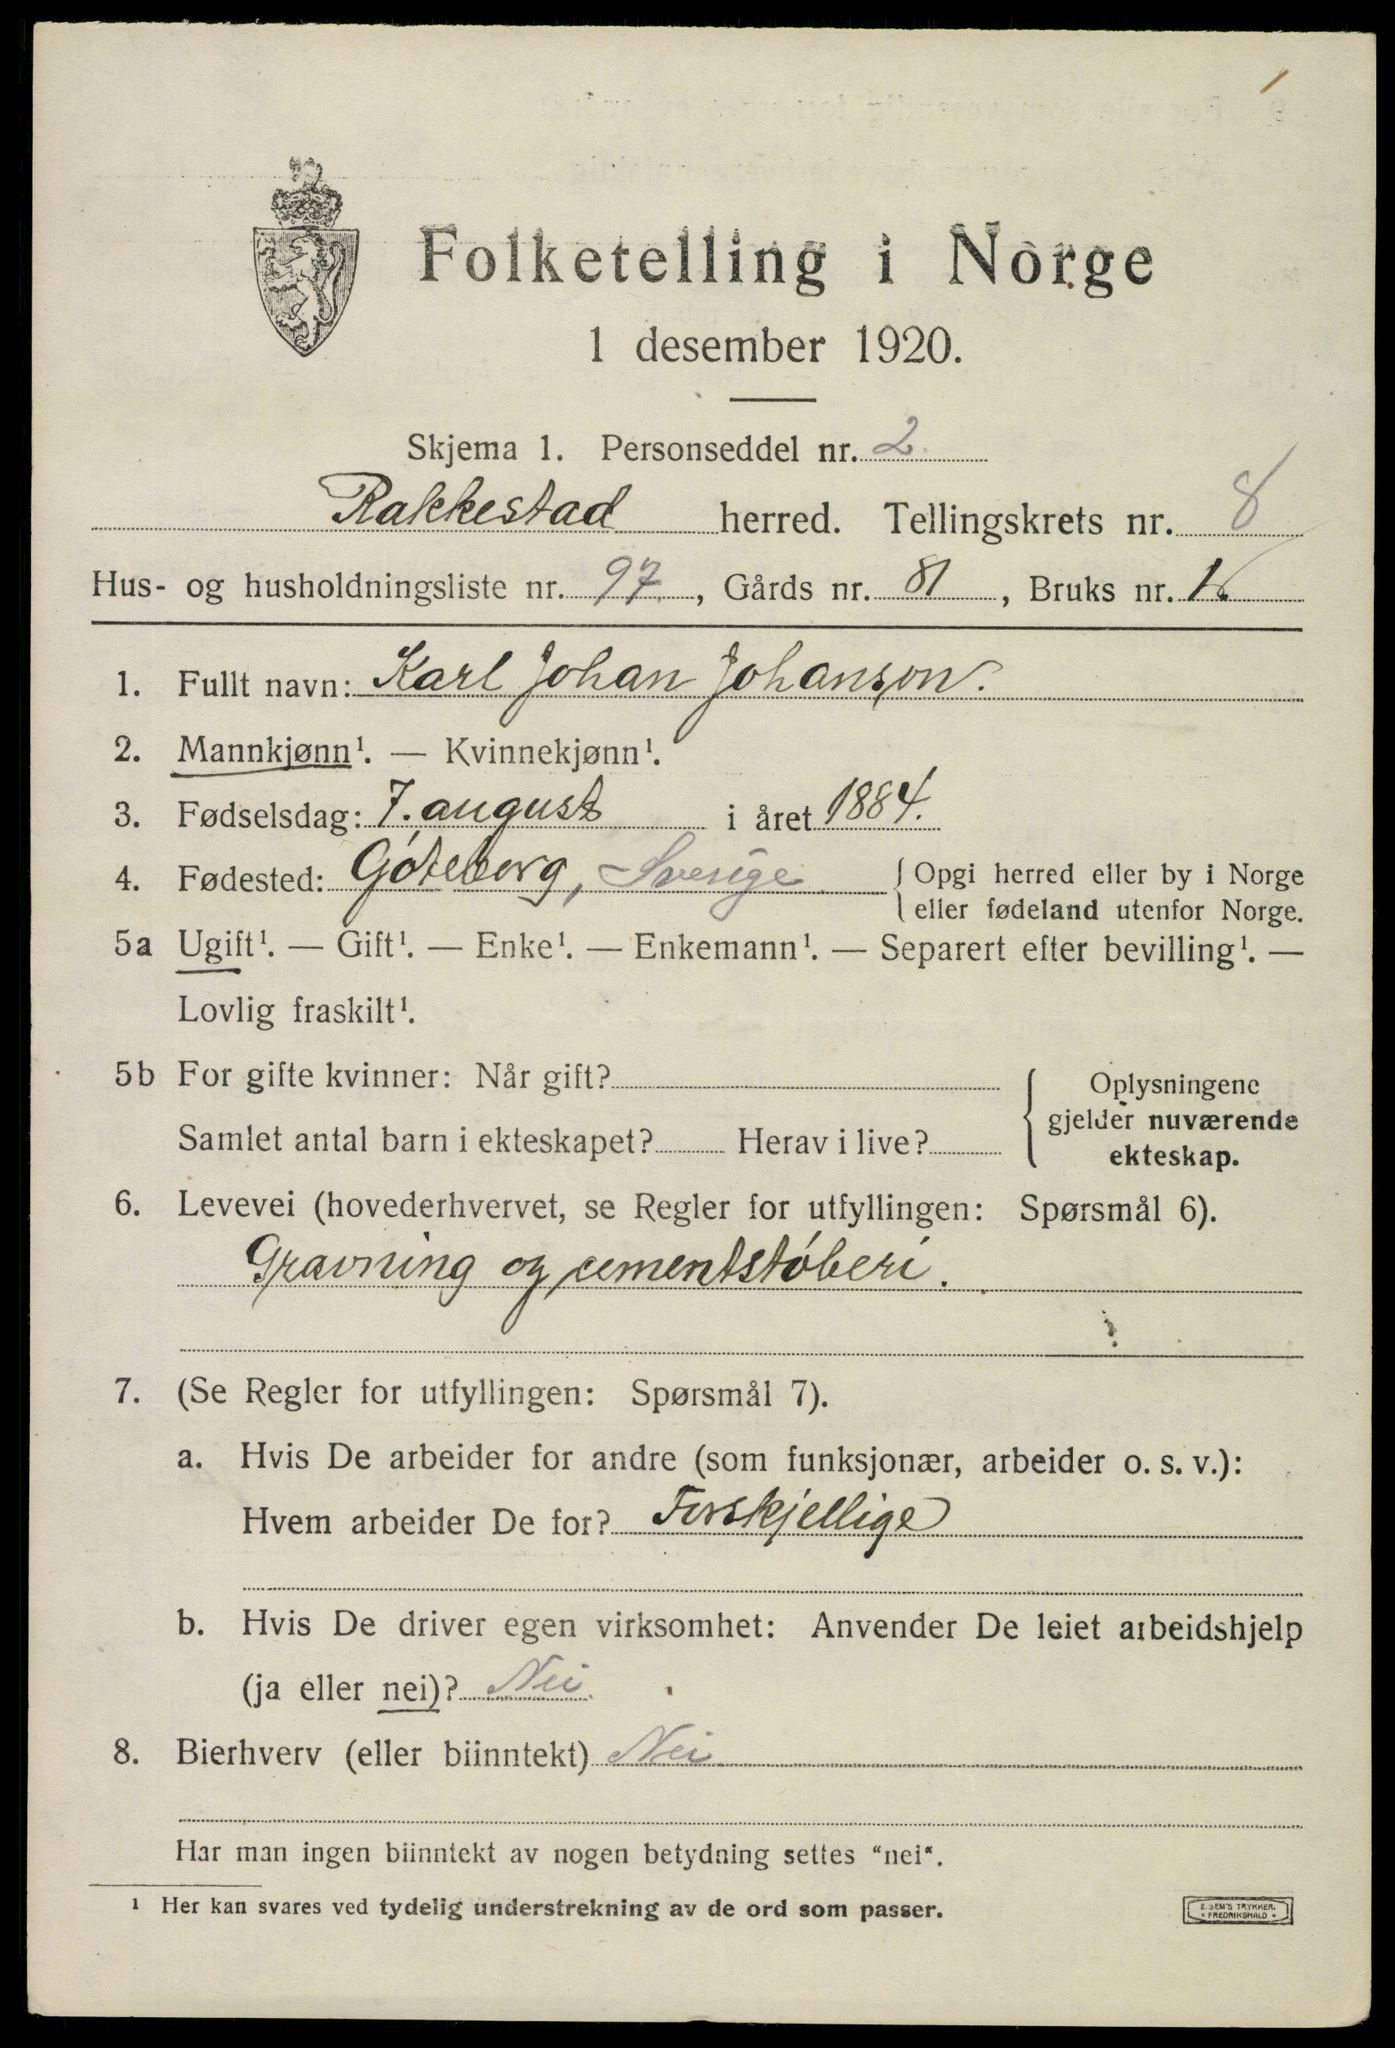 1
Folketelling i Norge
1 desember 1920.
Skjema 1. Personseddel nr. 2.
Rakkestad herred. Tellingskrets nr. 8
Hus- og husholdningsliste nr. 97, Gårds nr. 81, Bruks nr. 1
1. Fullt navn: Karl Johan Johanson.
2. Mannkjønn¹. — Kvinnekjønn¹.
3. Fødselsdag: 7. august i året 1884.
4. Fødested: Göteborg, Sverige { Opgi herred eller by i Norge
eller fødeland utenfor Norge.
5a Ugift¹. — Gift¹. — Enke¹. — Enkemann¹. — Separert efter bevilling¹. —
Lovlig fraskilt¹.
5b For gifte kvinner: Når gift?
Samlet antal barn i ekteskapet? Herav i live?
Oplysningene
gjelder nuværende
ekteskap.
6. Levevei (hovederhvervet, se Regler for utfyllingen: Spørsmål 6).
Gravning og cementstöberi.
7. (Se Regler for utfyllingen: Spørsmål 7).
a. Hvis De arbeider for andre (som funksjonær, arbeider o. s. v.):
Hvem arbeider De for? Forskjellige
b. Hvis De driver egen virksomhet: Anvender De leiet arbeidshjelp
(ja eller nei)? Nei.
8. Bierhverv (eller biinntekt) Nei.
Har man ingen biinntekt av nogen betydning settes "nei".
¹ Her kan svares ved tydelig understrekning av de ord som passer.
E. SEM'S TRYKKER.
FREDRIKSHALD